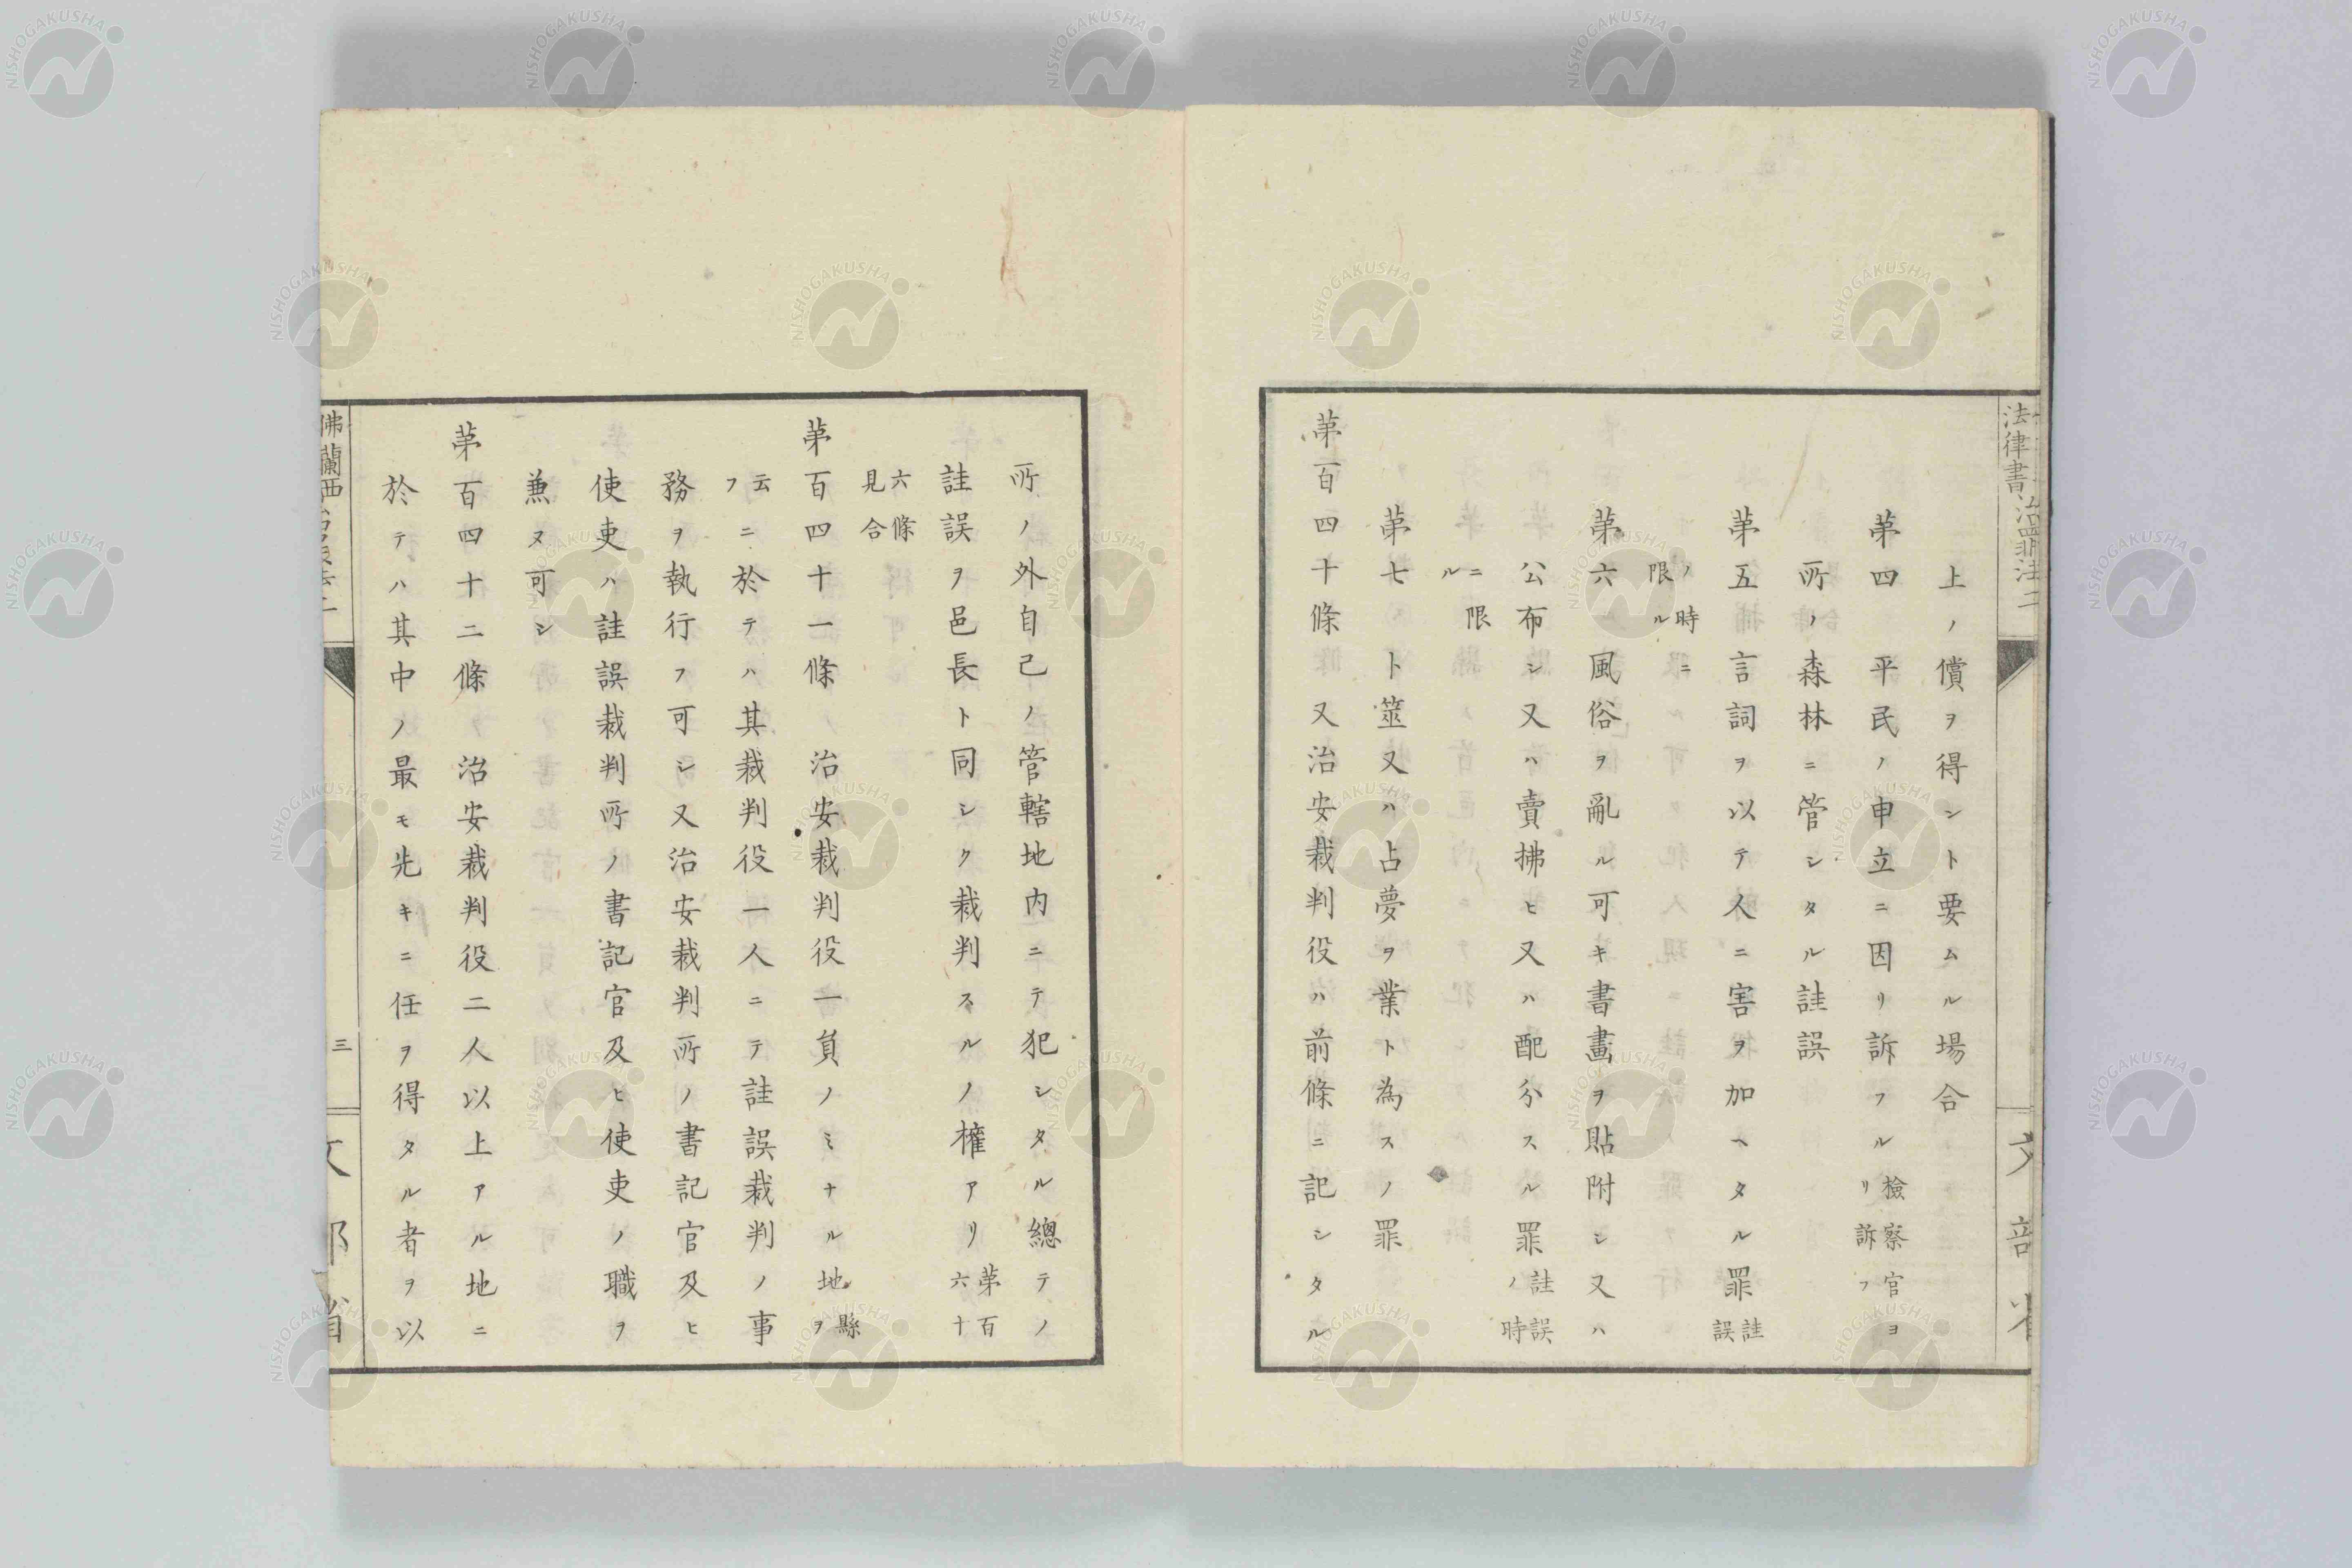 法律書 治罪法 二
上ノ償ヲ得ント要ムル場合
第四 平民ノ申立ニ因リ訴フル 檢察官ヨリ訴フ
所ノ森林ニ管シタル註誤
第五言詞ヲ以テ人ニ害ヲ加ヘタル罪 註誤
ノ時ニ限ル
第六風俗ヲ亂ル可キ書畫ヲ貼附シ又ハ
公布シ又ハ賣拂ヒ又ハ配分スル罪 註誤ノ時
ニ限ル
第七卜筮又ハ占夢ヲ業ト為スノ罪
第百四十條 又治安裁判役ハ前條ニ記シタル
所ノ外自己ノ管轄地内ニテ犯シタル總テノ
註誤ヲ邑長ト同シク裁判スルノ權アリ 第百六十
六條見合
第百四十一條 治安裁判役一員ノミナル地 縣ヲ
云フニ於テハ其裁判役一人ニテ註誤裁判ノ事
務ヲ執行フ可シ又治安裁判所ノ書記官及ヒ
使吏ハ註誤裁判所ノ書記官及ヒ使吏ノ職ヲ
兼ヌ可シ
第百四十二條 治安裁判役二人以上アル地ニ
於テハ其中ノ最モ先キニ任ヲ得タル者ヲ以
佛蘭西
三
文部省
NISHOGAKUSHA